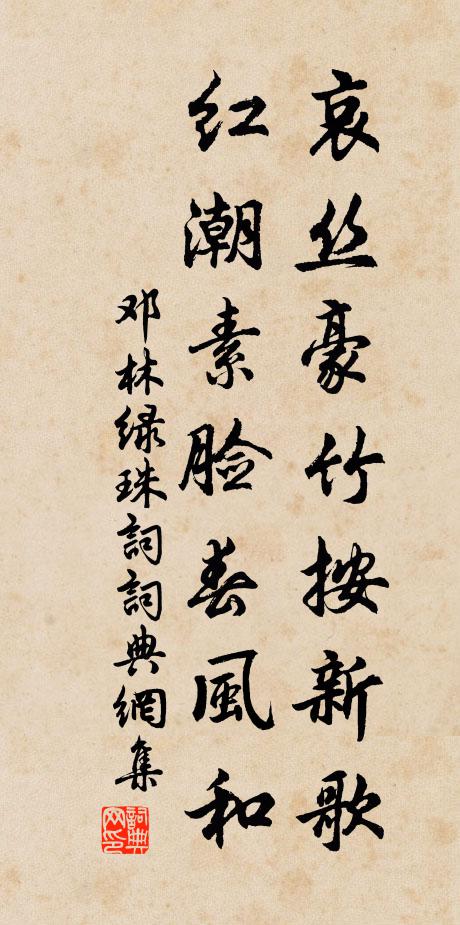 哀丝豪竹按新歌
红潮素脸春风和
邓林绿珠詞詞典網集
詞典网印